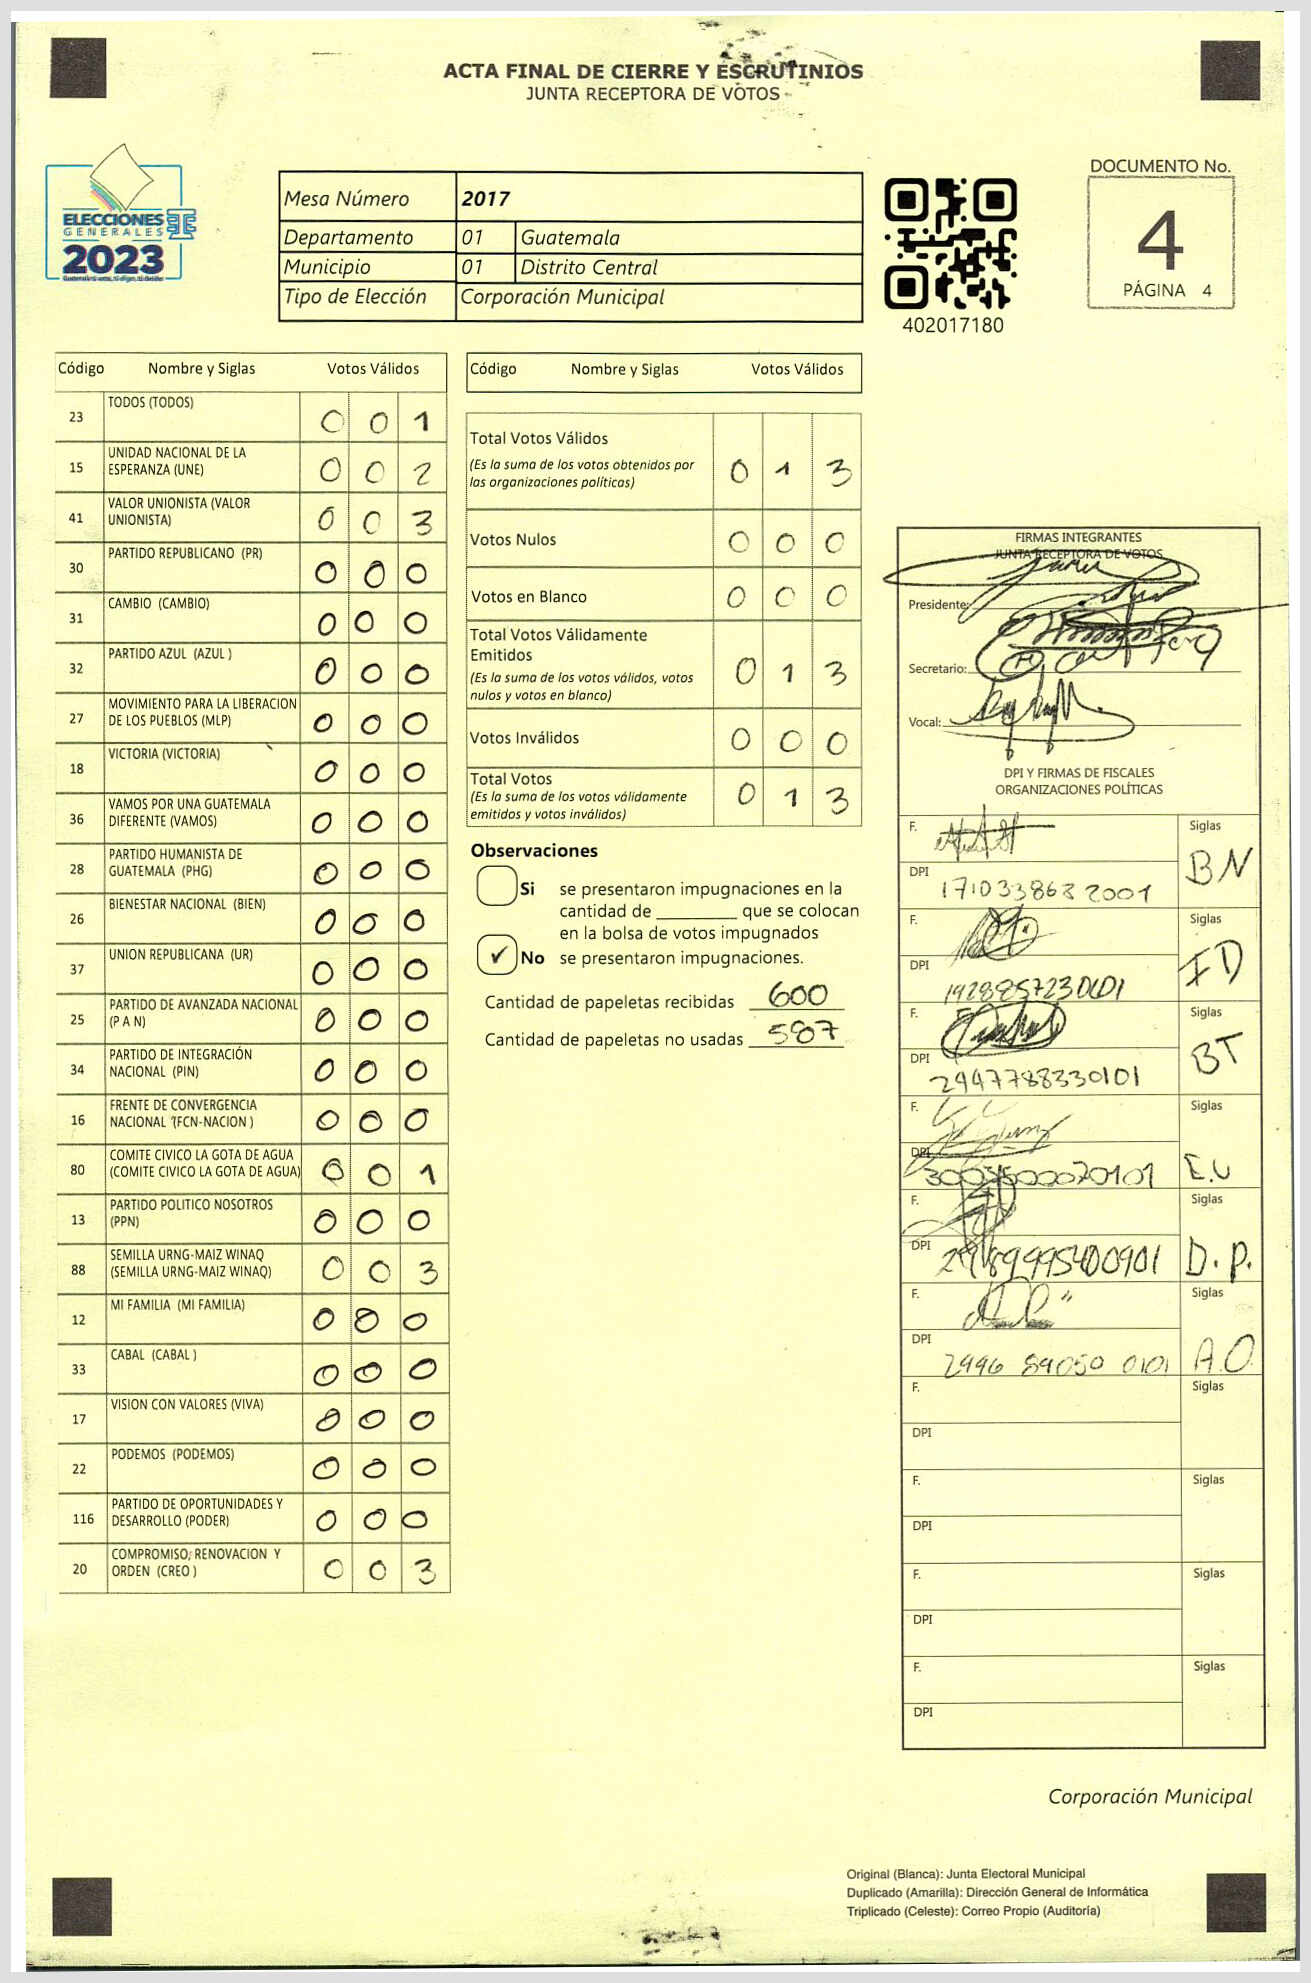 ACTA FINAL DE CIERRE Y ESCRUTINIOS
JUNTA RECEPTORA DE VOTOS
ELECCIONES
GENERALES
2023
Mesa Número 2017
Departamento 01 Guatemala
Municipio 01 Distrito Central
Tipo de Elección Corporación Municipal
402017180
DOCUMENTO No.
4
PÁGINA 4
Código Nombre y Siglas Votos Válidos
23 TODOS (TODOS) 0 0 1
15 UNIDAD NACIONAL DE LA
ESPERANZA (UNE) 0 0 2
41 VALOR UNIONISTA (VALOR
UNIONISTA) 0 0 3
30 PARTIDO REPUBLICANO (PR) 0 0 0
31 CAMBIO (CAMBIO) 0 0 0
32 PARTIDO AZUL (AZUL ) 0 0 0
27 MOVIMIENTO PARA LA LIBERACION
DE LOS PUEBLOS (MLP) 0 0 0
18 VICTORIA (VICTORIA) 0 0 0
36 VAMOS POR UNA GUATEMALA
DIFERENTE (VAMOS) 0 0 0
28 PARTIDO HUMANISTA DE
GUATEMALA (PHG) 0 0 0
26 BIENESTAR NACIONAL (BIEN) 0 0 0
37 UNION REPUBLICANA (UR) 0 0 0
25 PARTIDO DE AVANZADA NACIONAL
(P A N) 0 0 0
34 PARTIDO DE INTEGRACIÓN
NACIONAL (PIN) 0 0 0
16 FRENTE DE CONVERGENCIA
NACIONAL (FCN-NACION ) 0 0 0
80 COMITE CIVICO LA GOTA DE AGUA
(COMITE CIVICO LA GOTA DE AGUA) 0 0 1
13 PARTIDO POLITICO NOSOTROS
(PPN) 0 0 0
88 SEMILLA URNG-MAIZ WINAQ
(SEMILLA URNG-MAIZ WINAQ) 0 0 3
12 MI FAMILIA (MI FAMILIA) 0 0 0
33 CABAL (CABAL ) 0 0 0
17 VISION CON VALORES (VIVA) 0 0 0
22 PODEMOS (PODEMOS) 0 0 0
116 PARTIDO DE OPORTUNIDADES Y
DESARROLLO (PODER) 0 0 0
20 COMPROMISO, RENOVACION Y
ORDEN (CREO ) 0 0 3
Código Nombre y Siglas Votos Válidos
Total Votos Válidos
(Es la suma de los votos obtenidos por
las organizaciones políticas) 0 1 3
Votos Nulos 0 0 0
Votos en Blanco 0 0 0
Total Votos Válidamente
Emitidos
(Es la suma de los votos válidos, votos
nulos y votos en blanco) 0 1 3
Votos Inválidos 0 0 0
Total Votos
(Es la suma de los votos válidamente
emitidos y votos inválidos) 0 1 3
Observaciones
Si se presentaron impugnaciones en la
cantidad de ________ que se colocan
en la bolsa de votos impugnados
✓ No se presentaron impugnaciones.
Cantidad de papeletas recibidas 600
Cantidad de papeletas no usadas 587
FIRMAS INTEGRANTES
JUNTA RECEPTORA DE VOTOS
Presidente:
Secretario:
Vocal:
DPI Y FIRMAS DE FISCALES
ORGANIZACIONES POLÍTICAS
F. Siglas
BN
DPI 171033868 2001
F. Siglas
ID
DPI
F. Siglas
BT
DPI 2947788330101
F. Siglas
E.U
DPI
F. Siglas
D.P.
DPI
F. Siglas
A.O.
DPI 2996 89050 0101
F. Siglas
DPI
F. Siglas
DPI
F. Siglas
DPI
F. Siglas
DPI
Corporación Municipal
Original (Blanca): Junta Electoral Municipal
Duplicado (Amarilla): Dirección General de Informática
Triplicado (Celeste): Correo Propio (Auditoría)